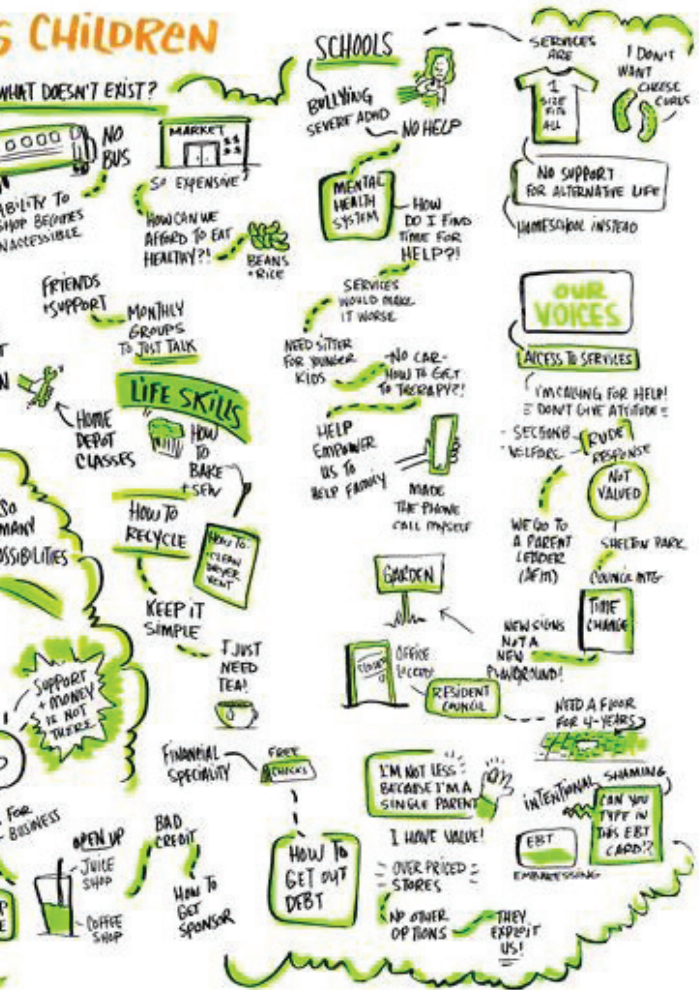 S CHILDREN
WHAT DOESN'T EXIST?
NO
BUS
ABILITY TO
SHOP BECOMES
INACCESSIBLE
MARKET
SO EXPENSIVE?
HOW CAN WE
AFFORD TO EAT
HEALTHY?!
BEANS
+ RICE
FRIENDS
+SUPPORT
MONTHLY
GROUPS
TO JUST TALK
LIFE SKILLS
HOME
DEPOT
CLASSES
HOW
TO
BAKE
+ SEW
HOW TO
RECYCLE
HOW TO
CLEAN
DRYER
VENT
KEEP IT
SIMPLE
I JUST
NEED
TEA!
SO
MANY
POSSIBILITIES
SUPPORT
+ MONEY
IS NOT
THERE
FOR
BUSINESS
OPEN UP
JUICE
SHOP
COFFEE
SHOP
BAD
CREDIT
HOW TO
GET
SPONSOR
FINANCIAL
SPECIALITY
FREE
CHECKS
HOW TO
GET OUT
DEBT
SCHOOLS
BULLYING
SEVERE ADHD
NO HELP
MENTAL
HEALTH
SYSTEM
HOW
DO I FIND
TIME FOR
HELP?!
SERVICES
WOULD MAKE
IT WORSE
NEED SITTER
FOR YOUNGER
KIDS
NO CAR-
HOW TO GET
TO THERAPY?!
HELP
EMPOWER
US TO
HELP FAMILY
MADE
THE PHONE
CALL MYSELF
GARDEN
CLOSED
OFFICE
LOCKED!
RESIDENT
COUNCIL
NEED A FLOOR
FOR 4-YEARS
NEW SIGNS
NOT A
NEW
PLAYGROUND!
SERVICES
ARE
1
SIZE
FITS
ALL
I DON'T
WANT
CHEESE
CURLS
NO SUPPORT
FOR ALTERNATIVE LIFE
HOMESCHOOL INSTEAD
OUR
VOICES
ACCESS TO SERVICES
I'M CALLING FOR HELP!
DON'T GIVE ATTITUDE
- SECTION 8
- WELFARE
RUDE
RESPONSE
NOT
VALUED
WE GO TO
A PARENT
LEADER
SHELTON PARK
COUNCIL MTG
TIME
CHANGE
I'M NOT LESS
BECAUSE I'M A
SINGLE PARENT
I HAVE VALUE!
OVER PRICED
STORES
NO OTHER
OPTIONS
THEY
EXPLOIT
US!
INTENTIONAL SHAMING
CAN YOU
TYPE IN
THIS EBT
CARD!?
EBT
EMBARRESSING